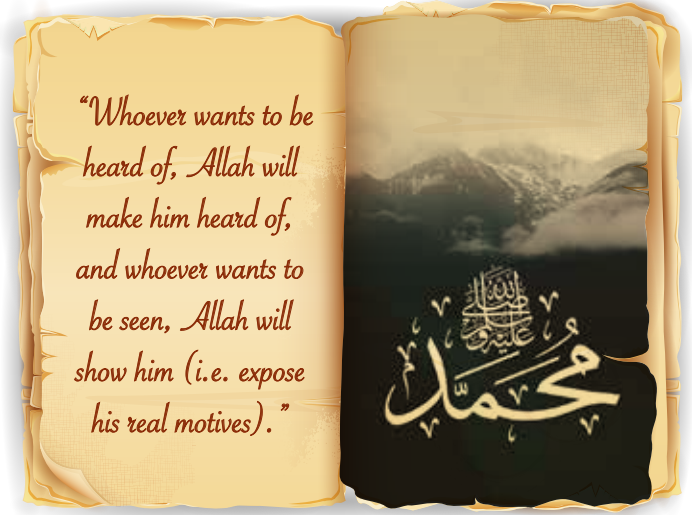 “Whoever wants to be
heard of, Allah will
make him heard of,
and whoever wants to
be seen, Allah will
show him (i.e. expose
his real motives).”
صلى الله عليه وسلم
محمد